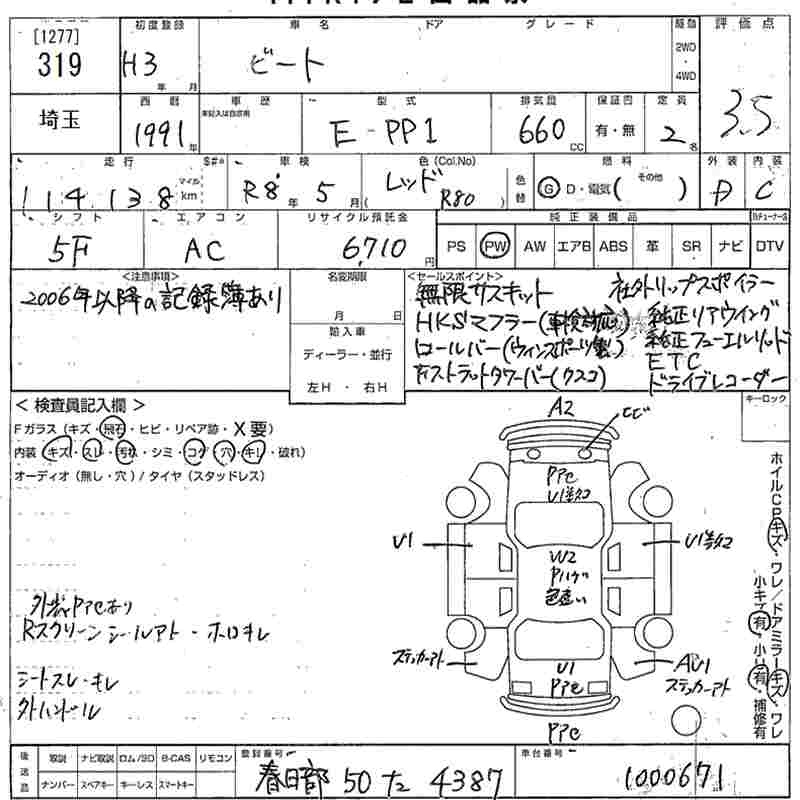 [1277]
319
初度登録
H3
年 月
車名
ビート
ドア
グレード
駆動
2WD
・
4WD
評価点
3.5
埼玉
西暦
1991
年
車歴
未記入は自家用
型式
E-PP1
排気量
660
CC
保証書
有・無
定員
2
名
走行
114,138
マイル
km
車検
R8年5月
色(Col.No)
レッド
(R80)
色替
燃料
G D・電気(その他)
外装
D
内装
C
シフト
5F
エアコン
AC
リサイクル預託金
6,710
円
純正装備品
PS PW AW エアB ABS 革 SR ナビ DTV
<注意事項>
2006年以降の記録簿あり
名変期限
月 日
輸入車
ディーラー・並行
左H ・ 右H
<セールスポイント>
無限サスキット
HKSマフラー(車検対応)
ロールバー(ウィンズスポーツ製)
ストラットタワーバー(クスコ)
社外リップスポイラー
純正リアウイング
純正フューエルリッド
ETC
ドライブレコーダー
<検査員記入欄>
Fガラス(キズ・飛石・ヒビ・リペア跡・X要)
内装(キズ・スレ・汚れ・シミ・コゲ・穴・キレ・破れ)
オーディオ(無し・穴)/タイヤ(スタッドレス)
外装Pアセあり
Rスクリーンシールアト・ホロキレ
シートスレ・キレ
外ハンドル
A2
ヒビ
Pアセ
U1
U1
W2
Pハゲ
色違い
ステッカーアト
U1
Pアセ
AU1
ステッカーアト
Pアセ
キーロック
ホイルCPキズ・ワレ/ドアミラーキズ・ワレ
小キズ有・小U有・補修有
後送品
取説 ナビ取説 ロム/SD B-CAS リモコン
ナンバー スペアキー キーレス スマートキー
登録番号
春日部 50 た 4387
車台番号
1000671